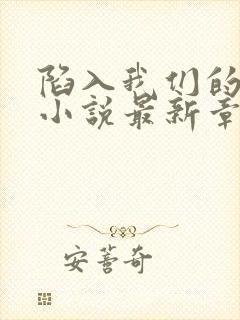 陷入我们的
小说最新章
安萻奇